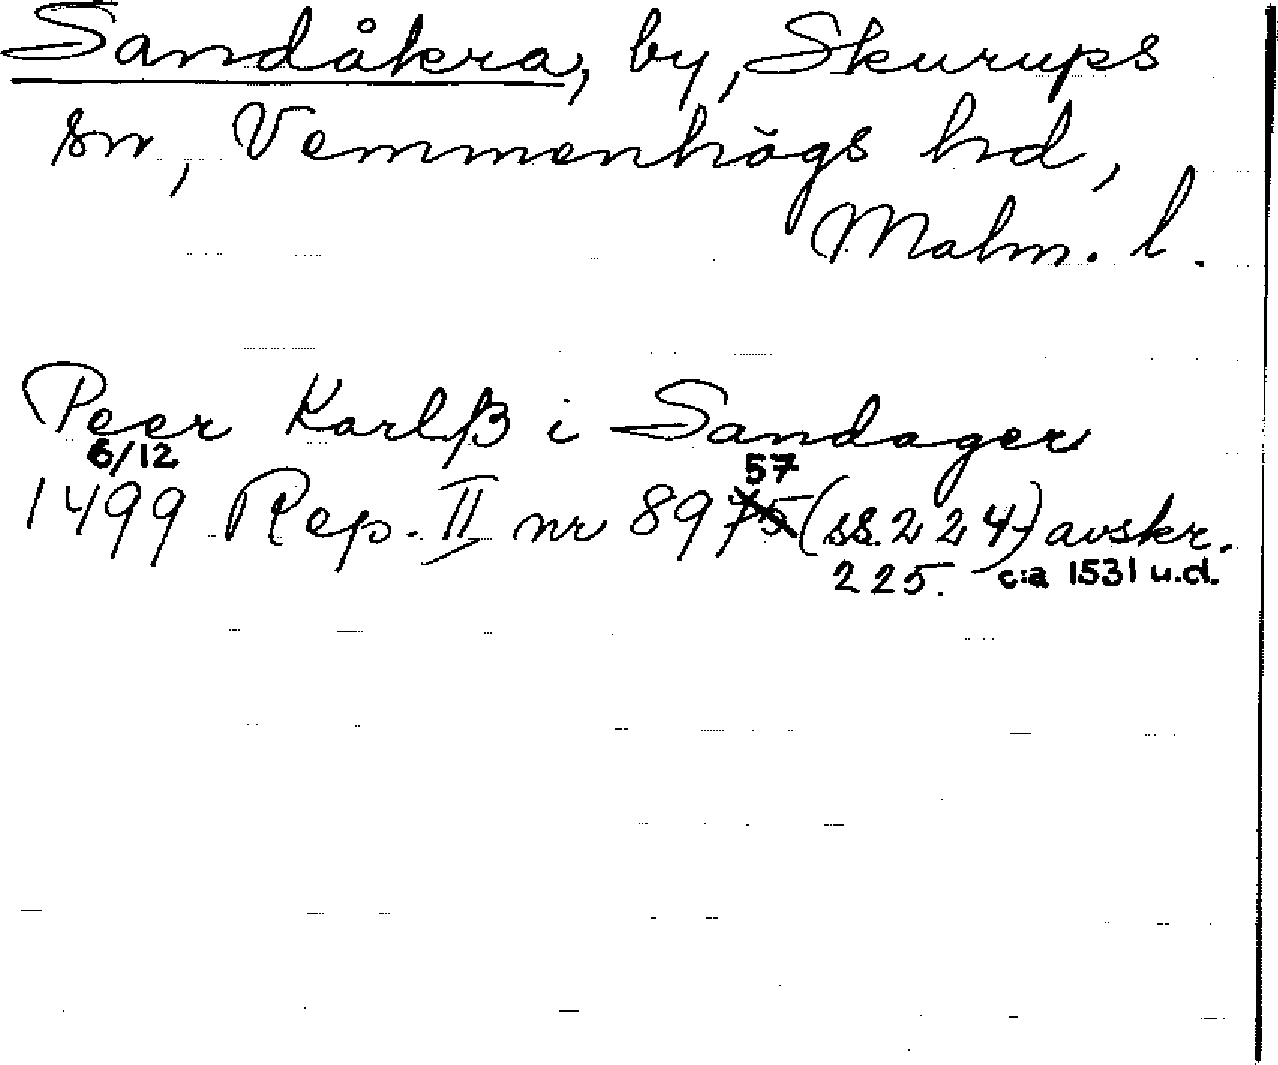 Sandåkra, by, Skurups
sn, Vemmenhögs hd,
Malm. l.
Peer Karlß i Sandager
6/12
57
1499 Rep. II nr 8975 (ss. 224) avskr.
225. c:a 1531 u.d.